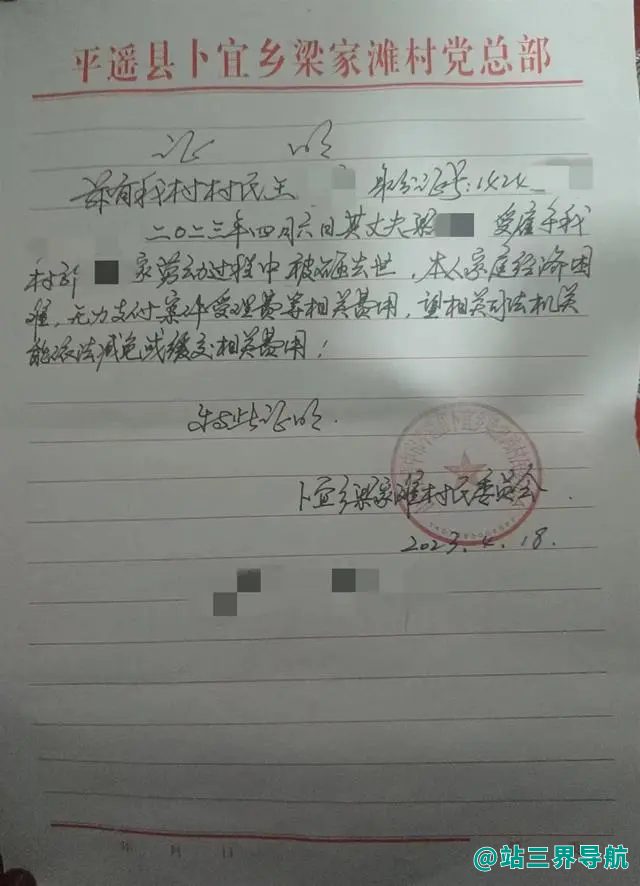 平遥县卜宜乡梁家滩村党总部
证 明
兹有我村村民王 身份证号:1424
二〇二三年四月六日其丈夫梁 受雇于我
村许 家劳动过程中被砸去世,本人家庭经济困
难,无力支付案件受理费等相关费用,望相关司法机关
能依法减免或缓交相关费用!
特此证明.
卜宜乡梁家滩村民委员会
2023.4.18.
年 月 日
@站三界导航